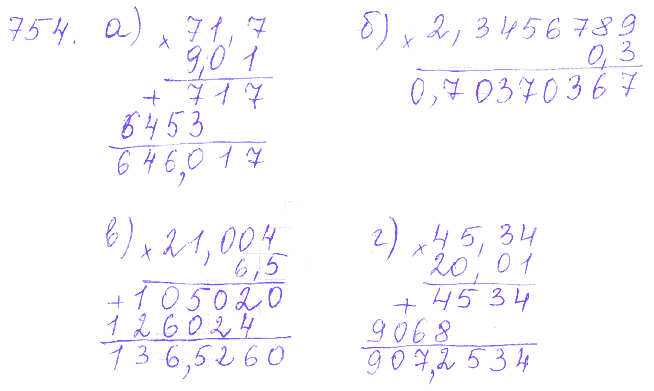 754. а) × 71,7
9,01
+ 717
6453
646,017
б) × 2,3456789
0,3
0,70370367
в) × 21,004
6,5
+ 105020
126024
136,5260
г) × 45,34
20,01
+ 4534
9068
907,2534